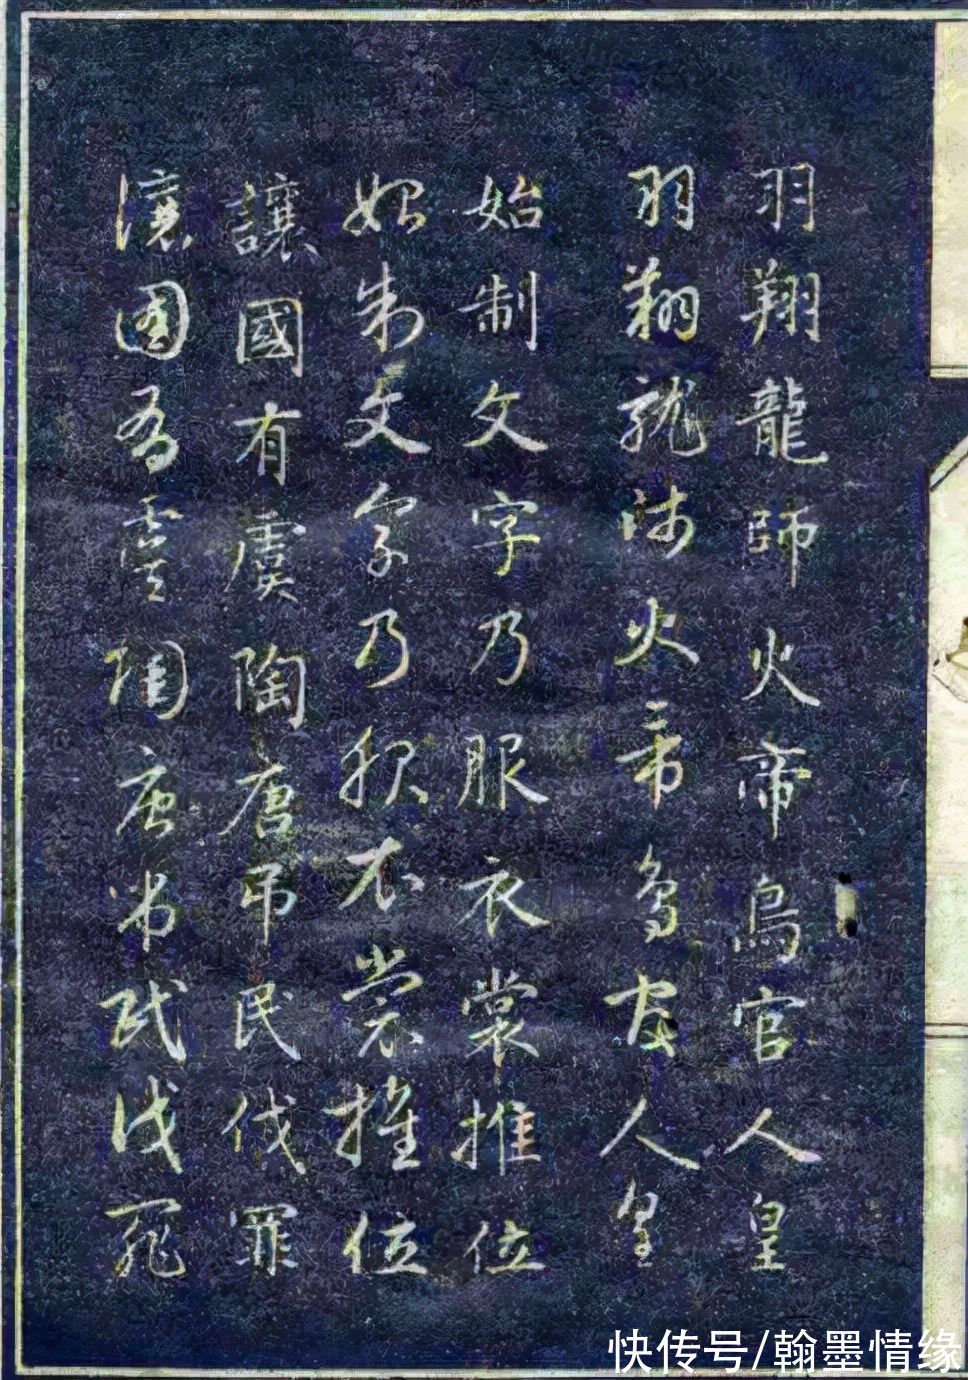 羽翔龍師火帝鳥官人皇
羽翔龍師火帝鳥官人皇
始制文字乃服衣裳推位
始制文字乃服衣裳推位
讓國有虞陶唐吊民伐罪
讓國有虞陶唐吊民伐罪
快传号/翰墨情缘